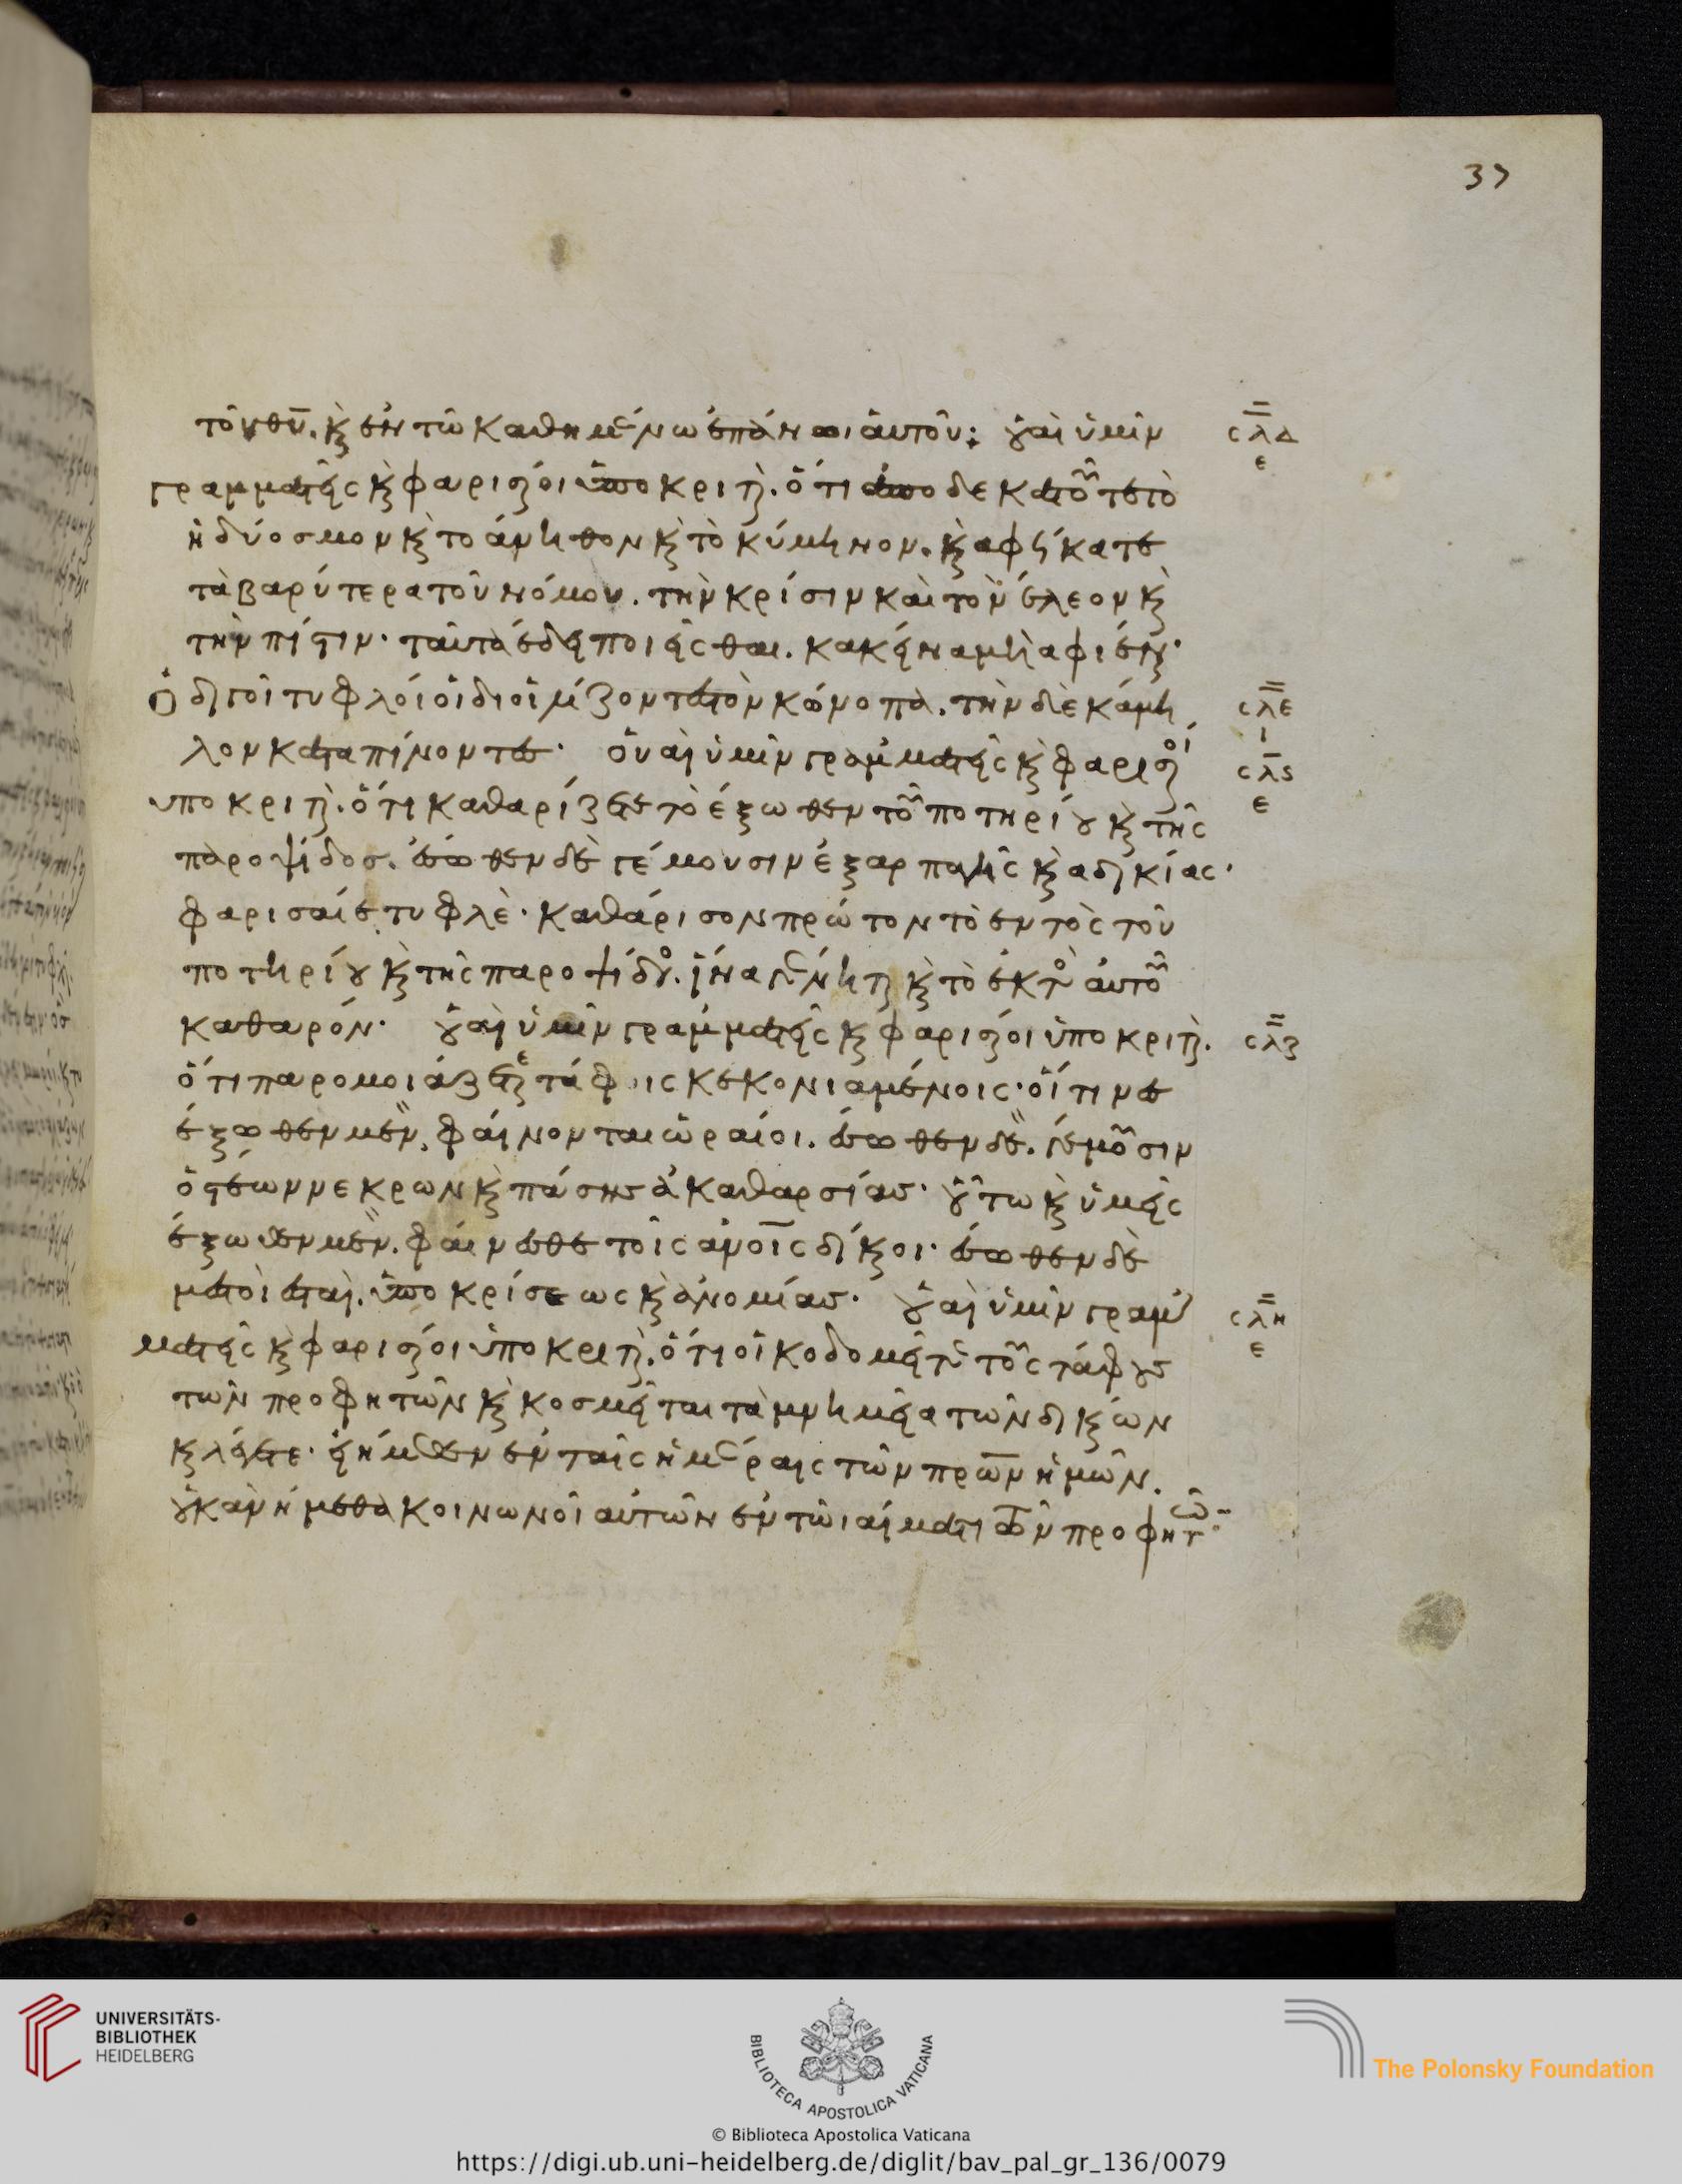 37
τοῦ θῦ. κ̀ ἐν τῶ καθημένω ἐπάνωι ἀυτοῦ: ȣ̓αὶ ὑμῖν
σλδ
ε
γραμματεῖς κ̀ φαρισαίοι ὑποκριταὶ. ὅτι ἀποδεκατοῦτε τὸ
ἡδύοσμον κ̀ το ἄνηθον κ̀ τὸ κύμηνον. κ̀ αφήκατε
τὰ βαρύτερα τοῦ νόμου. τὴν κρίσιν καὶ τὸν ἔλεον κ̀
τὴν πίστιν· ταῦτα ἔδει ποιεῖσθαι. κακεῖνα μὴ αφιέναι·
Ὁδηγοὶ τυφλοί οἱ διοϊλίζονται τὸν κώνοπα. τὴν δὲ κάμη
σλε
ι
λον καταπίνοντες· ὀυαὶ ὑμῖν γραμματεῖς κ̀ φαρισαίοι
σλς
ε
υποκριταὶ. ὅτι καθαρίζετε τὸ έξωθεν τοῦ ποτηρίȣ κ̀ τῆς
παροψίδοσ. ἔσωθεν δὲ γέμουσιν ἐξ αρπαγῆς κ̀ αδικίας·
φαρισαίε τυφλὲ· καθάρισον πρώτον τὸ εντὸς τοῦ
ποτηρίȣ κ̀ τῆς παροψίδος. ἵνα γένηται κ̀ τὸ ἐκτὸς ἀυτοῦ
καθαρόν· ȣ̓αὶ ὑμῖν γραμματεῖς κ̀ φαρισαίοι ὑποκριταὶ.
σλζ
ὅτι παρομοιάζεται τάφοις κεκονιαμένοις· οἵτινες
έξωθεν μεν, φάινονται ὡραίοι. ἔσωθεν δε. γέμουσιν
ὀστέων νεκρων κ̀ πάσησ ἀκαθαρσίασ· ȣ̔́τω κ̀ ὑμεῖς
έξωθεν μεν. φάινεσθε τοῖς ἀνο̅ις δίκαιοι· ἔσωθεν δὲ
μεστοί εσται. ὑποκρίσεως κ̀ ἀνομίασ· ȣ̓αὶ ὑμῖν γραμ
σλη
ε
ματεῖς κ̀ φαρισαίοι ὑποκριταὶ. ὅτι οἰκοδομεῖται τοὺς τάφȣσ
τῶν προφητῶν κ̀ κοσμεῖται τὰ μνημεῖα τῶν δικαίων
κ λέγετε· εἰ ήμεθεν ἐν ταῖς ἡμέραις τῶν πρω̅ν ἡμῶν.
ȣ̓κ ἀν ήμεθα κοινωνοὶ αὐτῶν ἐν τῶι αίματι τῶν προφητῶ
UNIVERSITÄTS-
BIBLIOTHEK
HEIDELBERG
BIBLIOTECA APOSTOLICA VATICANA
The Polonsky Foundation
© Biblioteca Apostolica Vaticana
https://digi.ub.uni-heidelberg.de/diglit/bav_pal_gr_136/0079